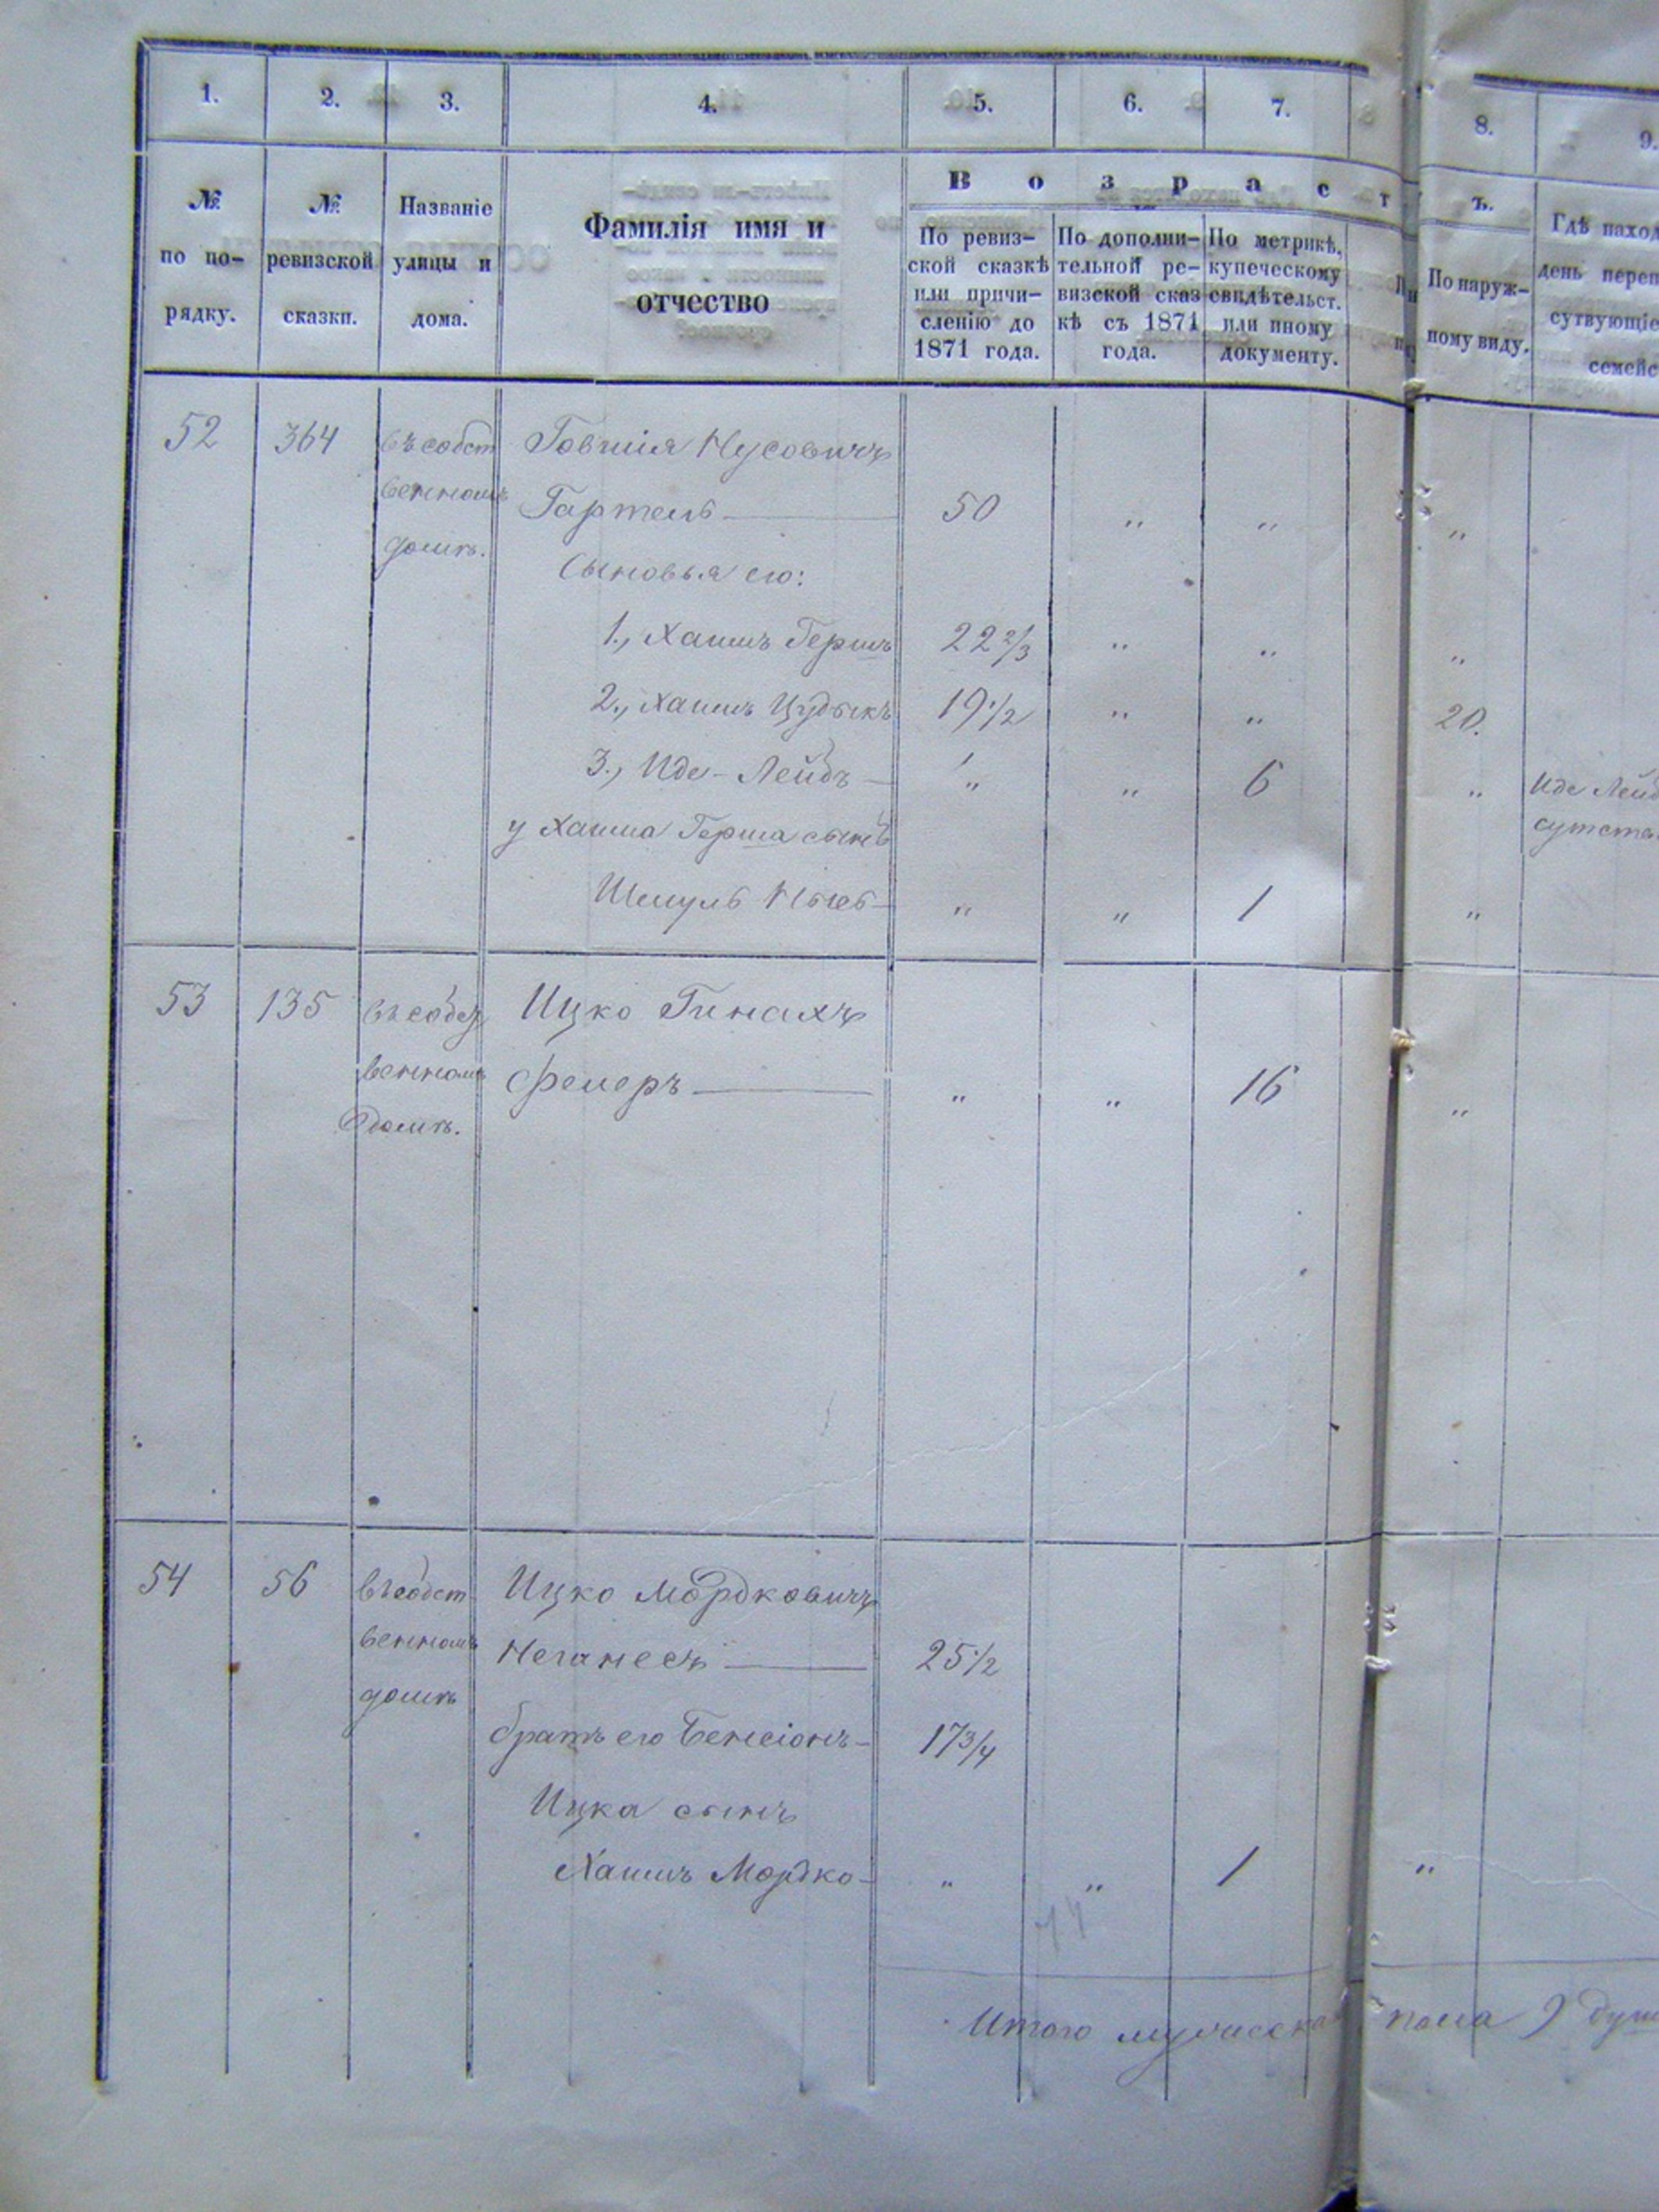 1. 2. 3. 4. 5. 6. 7. 8. 9.
№ по по-рядку.
№ ревизской сказки.
Названіе улицы и дома.
Фамилія имя и отчество
Возрастъ.
По ревиз-
ской сказкѣ
или причи-
сленію до
1871 года.
По дополни-
тельной ре-
визской сказ
кѣ съ 1871
года.
По метрикѣ,
купеческому
свидѣтельст.
или иному
документу.
По наруж-
ному виду.
Гдѣ наход
день переп
сутвующіе
семейс
52 364 въ собст Говшія Нусовичъ
венномъ Гартель 50 " " "
домѣ.
Сыновья его:
1., Хаимъ Гершъ 22 2/3 " " "
2., Хаимъ Цудыкъ 19 1/2 " " 20.
3., Иде-Лейбъ " " 6 " Иде Лейб
у Хаима Герша сынъ
Шмуль " " 1 "
53 135 въ собст Ицко Пинахъ
венномъ Фелеръ " " 16 "
домѣ.
54 56 въ собст Ицко Мордковичъ
венномъ 25 1/2
домѣ
братъ его Бенсіонъ 17 3/4
Ицка сынъ
Хаимъ Мордко " " 1 "
Итого мужеска пола 9 душ